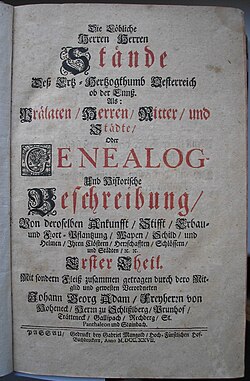 Die Löbliche
Herren Herren
Stände
Deß Ertz-Hertzogthumb Oesterreich
ob der Ennß.
Als:
Prälaten / Herren / Ritter / und
Städte /
Oder
GENEALOG-
Und Historische
Beschreibung /
Von deroselben Ankunfft / Stifft / Erbau-
und Fort-Pflantzung / Wapen / Schild / und
Helmen / Ihren Clöstern / Herrschafften / Schlössern /
und Städten / ꝛc. ꝛc.
Erster Theil.
Mit sondern Fleiß zusammen getragen durch dero Mit-
glid und gewesten Verordneten
Johann Georg Adam / Freyherrn von
Hoheneck / Herrn zu Schlüßlberg /
Gallspach / Rechberg / St.
Pantaleon und Steinbach.
PASSAU / Gedruckt bey Gabriel Mangold / Hoch-Fürstlichen Hof-
Buchdrucker / Anno M. DCC. XXVII.